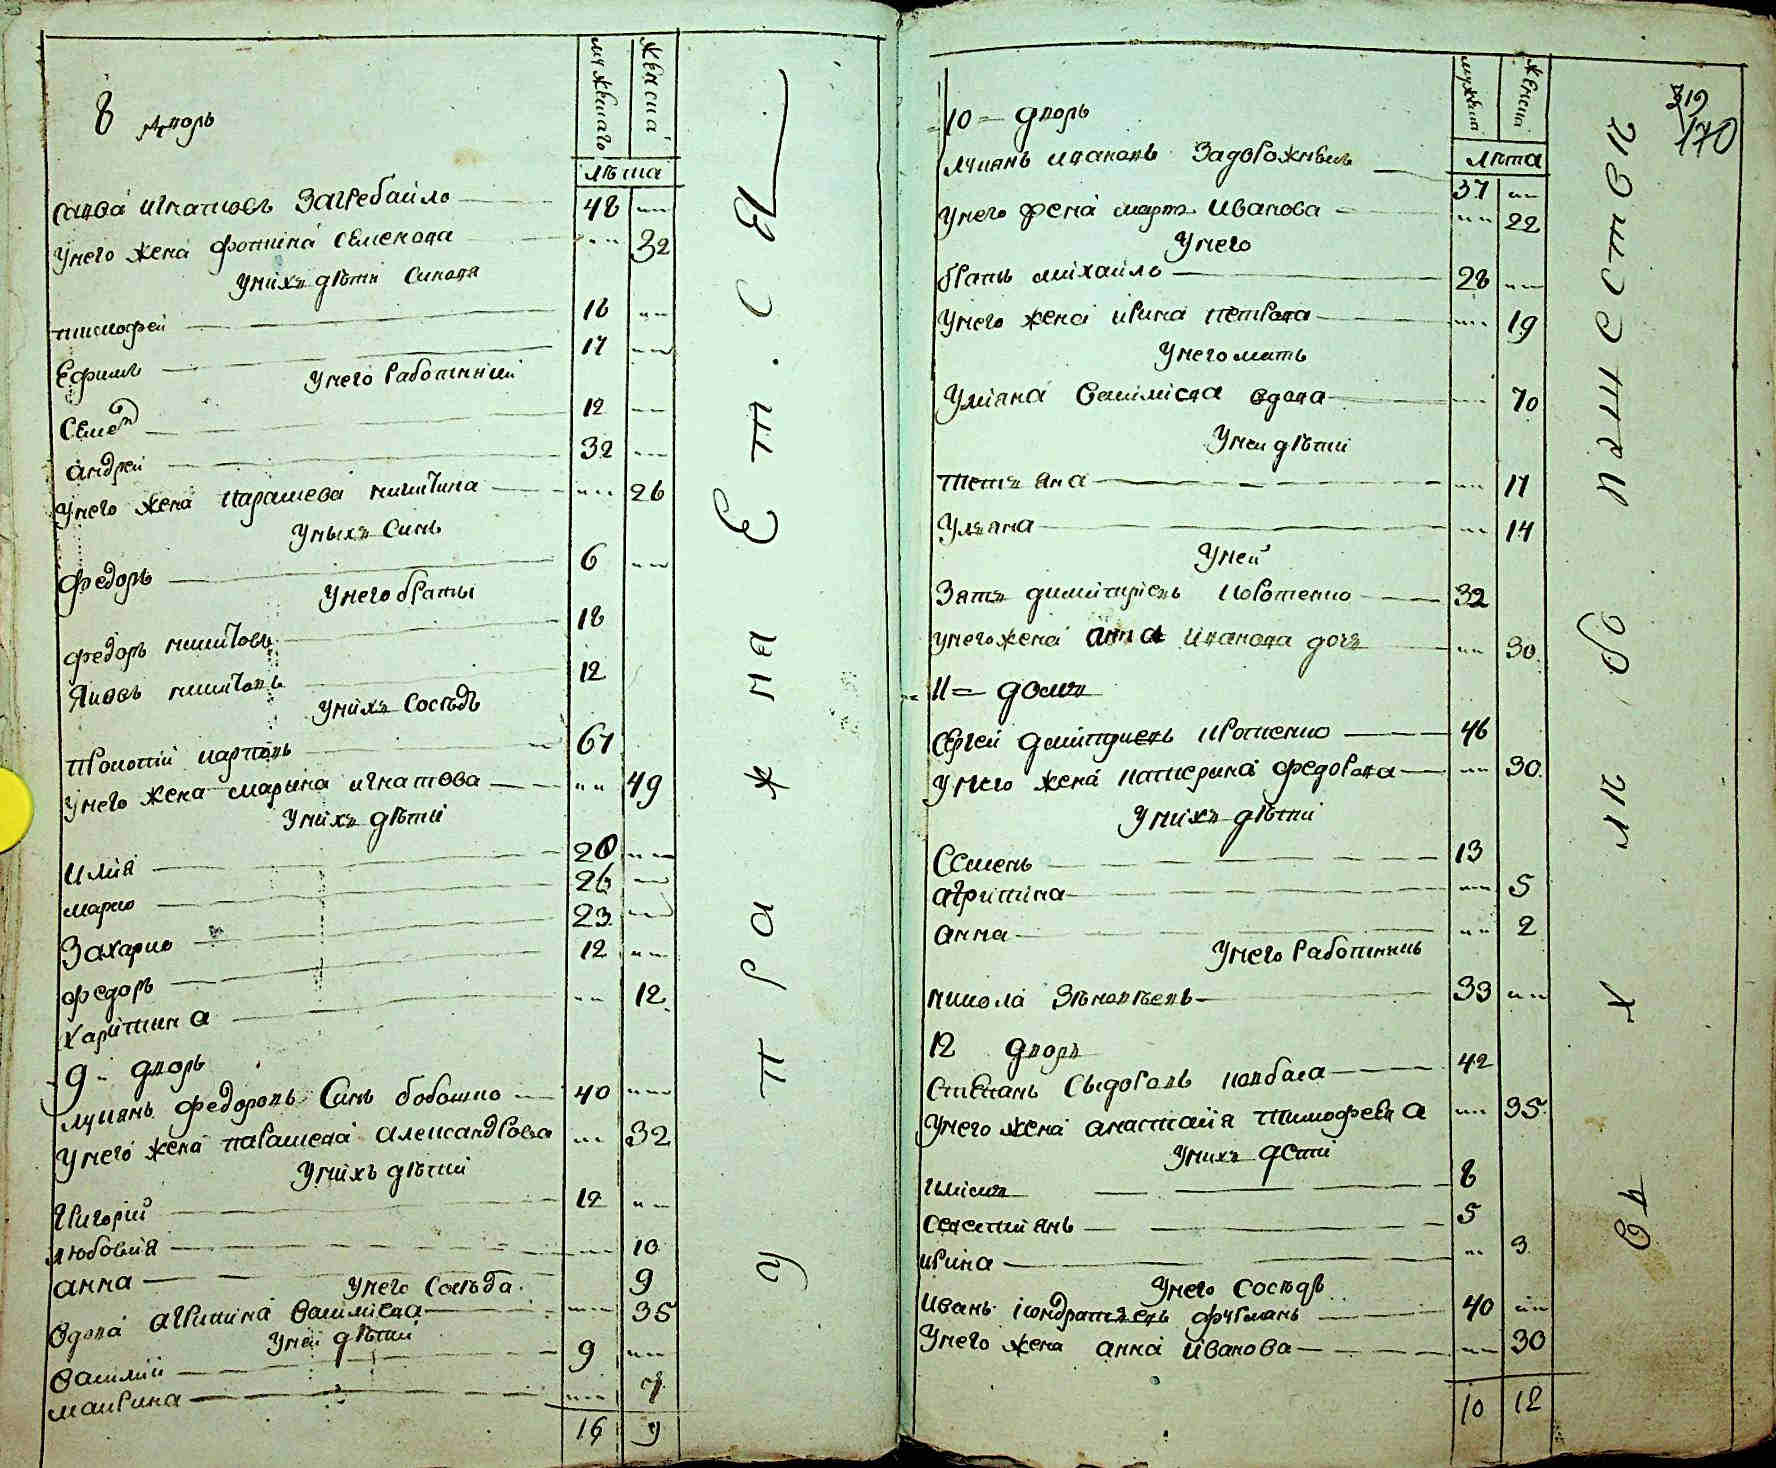 мужескаго
женска
лѣта
8 дворъ
савва игнатовъ Загребайло 48
Унего жена фотина семенова 32
Унихъ дѣти синовя
тимофей 16
Ефимъ 17
Унего работники
Семен 12
андрей 32
Унего жена парашева никитина 26
Уныхъ Синъ
федоръ 6
Унего браты
федоръ никитовъ 18
Яковъ никитовъ 12
Унихъ Сосѣдъ
прокопій карповъ 67
Унего жена марына игнатова 49
Унихъ дѣти
илія 28
марко 26
Захарио 23
федоръ 12
харитина 12
9 дворъ
лукянъ федоровъ Синъ бобошко 40
Унего жена парашева александрова 32
Унихъ дѣти
Григорій 12
любовія 10
анна 9
Унего Сосѣда
вдова агрипина василиева 35
Уней дѣти
Василій 9
маврина 7
16 9
у п р а ж н я Е т с Я
319
170
мужеска
женска
лѣта
10 дворъ
лукянъ ивановъ Задорожныи 37
Унего жена марта иванова 22
Унего
братъ михайло 28
Унего жена ирина петрова 19
Унего мать
Улияна василиева вдова 70
Уней дѣти
тетяна 17
Уляна 14
Уней
Зять димитриевъ коротенко 32
унего жена анна иванова дочь 30
11 домъ
Сергей димитриевъ кротенко 46
Унего жена катерина федорова 30
Унихъ дѣти
Семенъ 13
агрипина 5
анна 2
Унего работникъ
никола Зѣновѣевъ 33
12 дворъ
Стефанъ Сыдоровъ колбаса 42
Унего жена анастасия тимофеева 35
Унихъ дети
климъ 8
севастиянъ 5
ирина 3
Унего Сосѣдъ
Иванъ кондратѣевъ фурманъ 40
Унего жена анна иванова 30
10 12